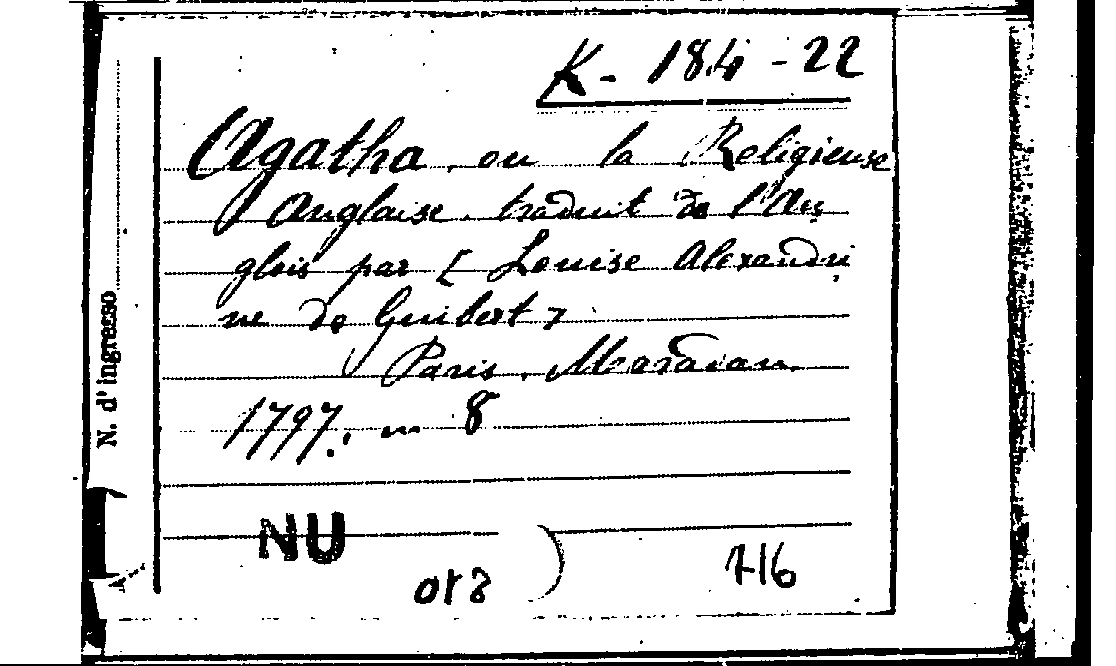 K - 184 - 22
Agatha, ou la Religieuse
Anglaise, traduit de l'An
glois par [ Louise Alexandri
ne de Guibert ]
Paris, Maradan
1797, in 8
N. d' ingresso
NU
716